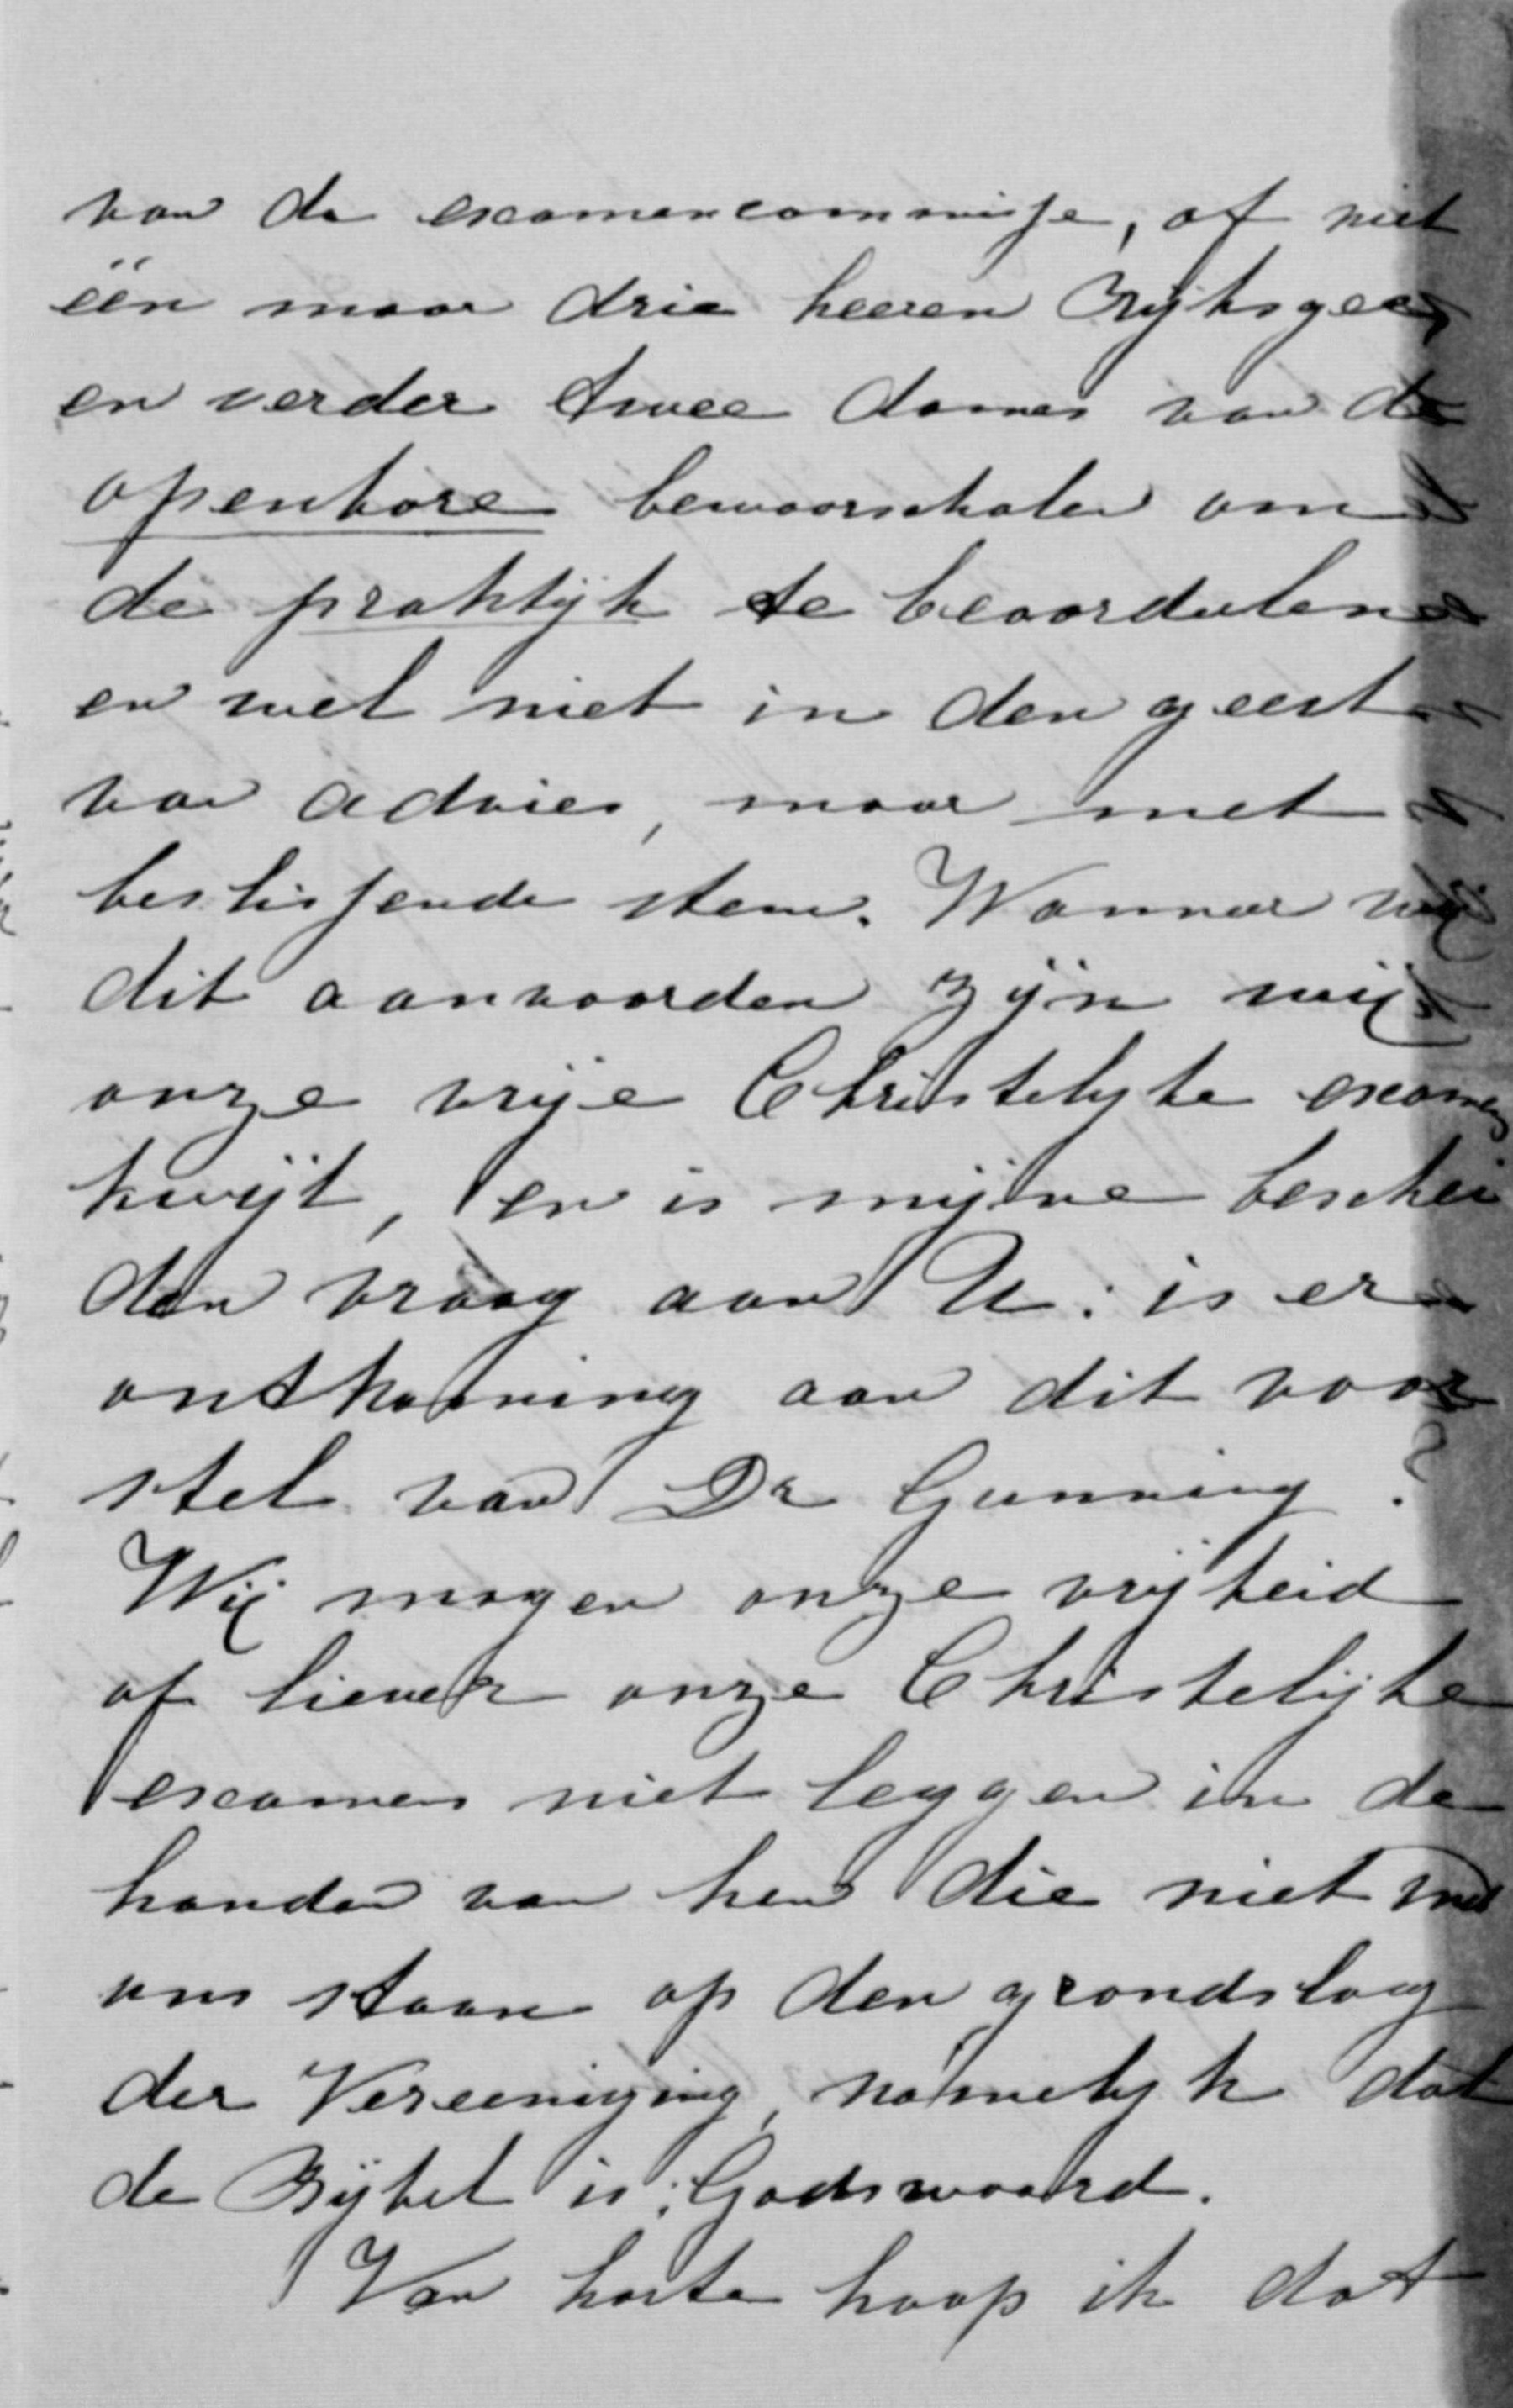 van de examencommissie, of niet
één maar drie heeren Rijksgec
en verder twee dames van de
openbare bewaarscholen om
de praktijk te beoordeelen
en wel niet in den geest
van advies, maar met
beslissende stem. Wanneer wij
dit aanvaarden zijn wij
onze vrije Christelijke examen
kwijt, en is mijne beschei
den vraag aan U: is er
ontkoming aan dit voor
stel van Dr Gunning?
Wij mogen onze vrijheid
of liever onze Christelijke
examens niet leggen in de
handen van hen die niet met
ons staan op den grondslag
der Vereeniging, namelijk dat
de Bijbel is: Gods woord.
Van harte hoop ik dat